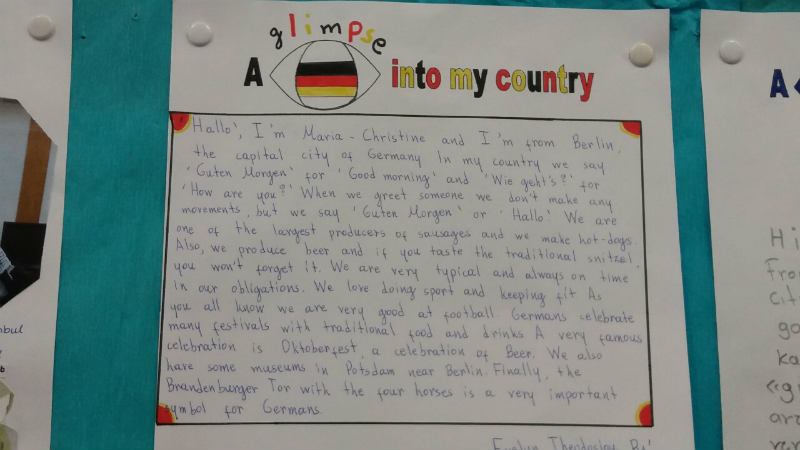 glimpse
A into my country
'Hallo', I'm Maria - Christine and I'm from Berlin,
the capital city of Germany In my country we say
'Guten Morgen' for 'Good morning' and 'Wie geht's?' for
'How are you?' When we greet someone we don't make any
movements, but we say 'Guten Morgen' or 'Hallo'. We are
one of the largest producers of sausages and we make hot-dogs.
Also, we produce beer and if you taste the traditional snitzel,
you won't forget it. We are very typical and always on time
in our obligations. We love doing sport and keeping fit As
you all know we are very good at football. Germans celebrate
many festivals with traditional food and drinks A very famous
celebration is Oktoberfest, a celebration of Beer. We also
have some museums in Potsdam near Berlin. Finally, the
Brandenburger Tor with the four horses is a very important
symbol for Germans.
A
Hi
From
Cit
go
ka
«g